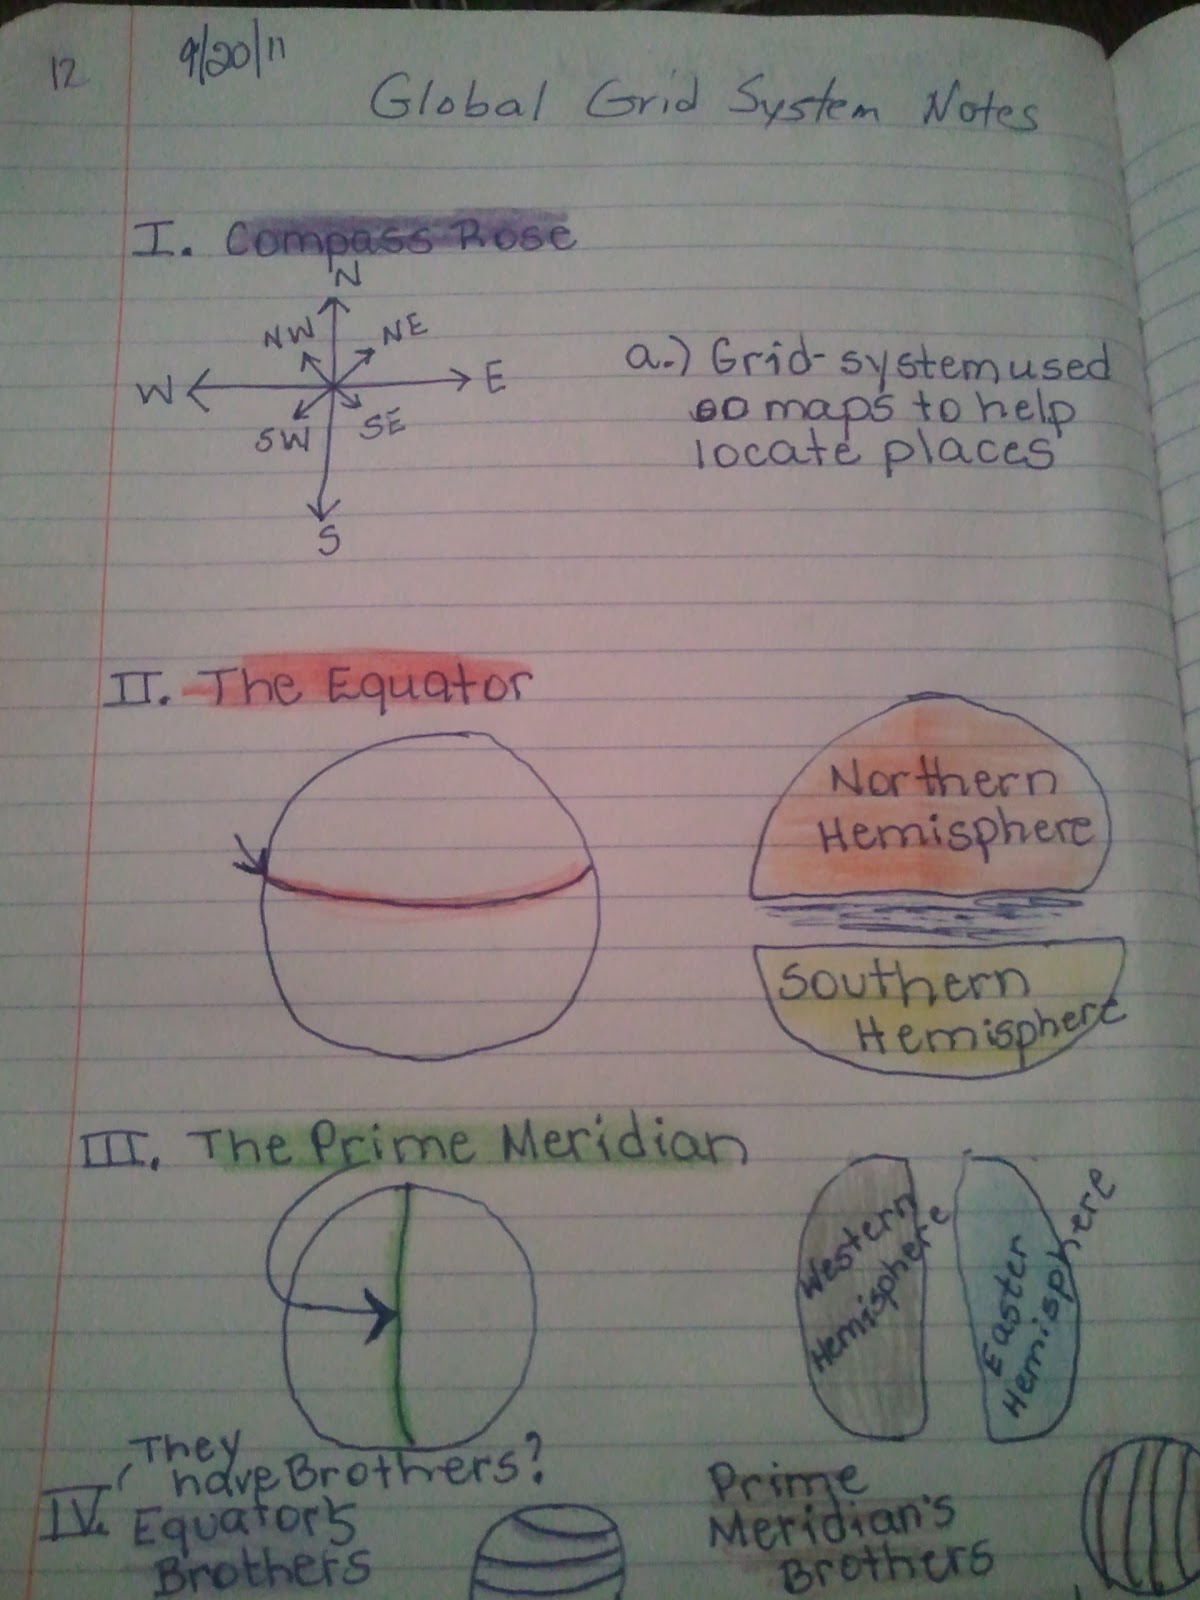 12
9/20/11
Global Grid System Notes
I. Compass Rose
N
NW
NE
W
E
SW
SE
S
a.) Grid-system used
on maps to help
locate places
II. The Equator
Northern
Hemisphere
Southern
Hemisphere
III. The Prime Meridian
Western
Hemisphere
Easter
Hemisphere
They
have Brothers?
IV. Equator's
Brothers
Prime
Meridian's
Brothers